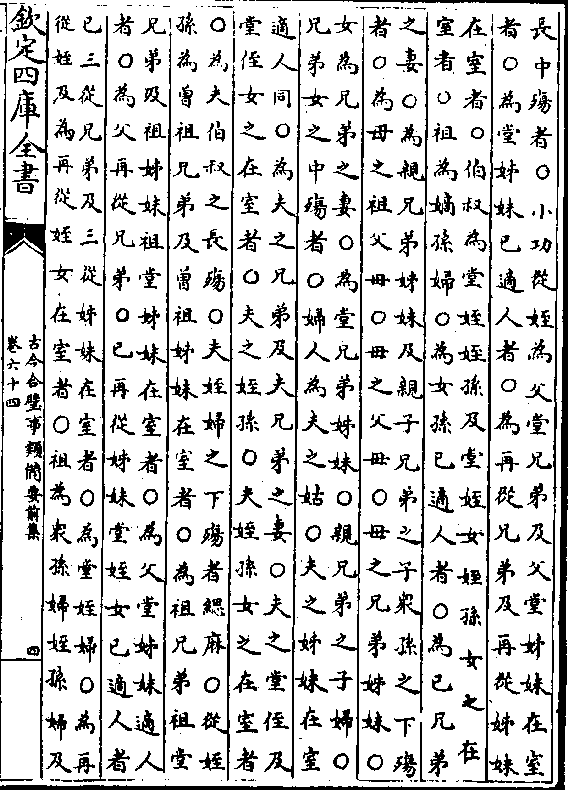 長中殤者〇小功從姪為父堂兄弟及父堂姊妹在室
者〇為堂姊妹已適人者〇為再從兄弟及再從姊妹
在室者〇伯叔為堂姪姪孫及堂姪女姪孫女之在
室者〇祖為嫡孫婦〇為女孫已適人者〇為已兄弟
之妻〇為親兄弟姊妹及親子兄弟之子衆孫之下殤
者〇為母之祖父母〇母之父母〇母之兄弟姊妹〇
女為兄弟之妻〇為堂兄弟姊妹〇親兄弟之子婦〇
兄弟女之中殤者〇婦人為夫之姑〇夫之姊妹在室
適人同〇為夫之兄弟及夫兄弟之妻〇夫之堂侄及
堂侄女之在室者〇夫之姪孫〇夫姪孫女之在室者
〇為夫伯叔之長殤〇夫姪婦之下殤者緦麻〇從姪
孫為曾祖兄弟及曾祖姊妹在室者〇為祖兄弟祖堂
兄弟及祖姊妹祖堂姊妹在室者〇為父堂姊妹適人
者〇為父再從兄弟〇已再從姊妹堂姪女已適人者
已三從兄弟及三從姊妹在室者〇為堂姪婦〇為再
從姪及為再從姪女在室者〇祖為衆孫婦姪孫婦及
欽定四庫全書
古今合璧事類備要前集
卷六十四
四